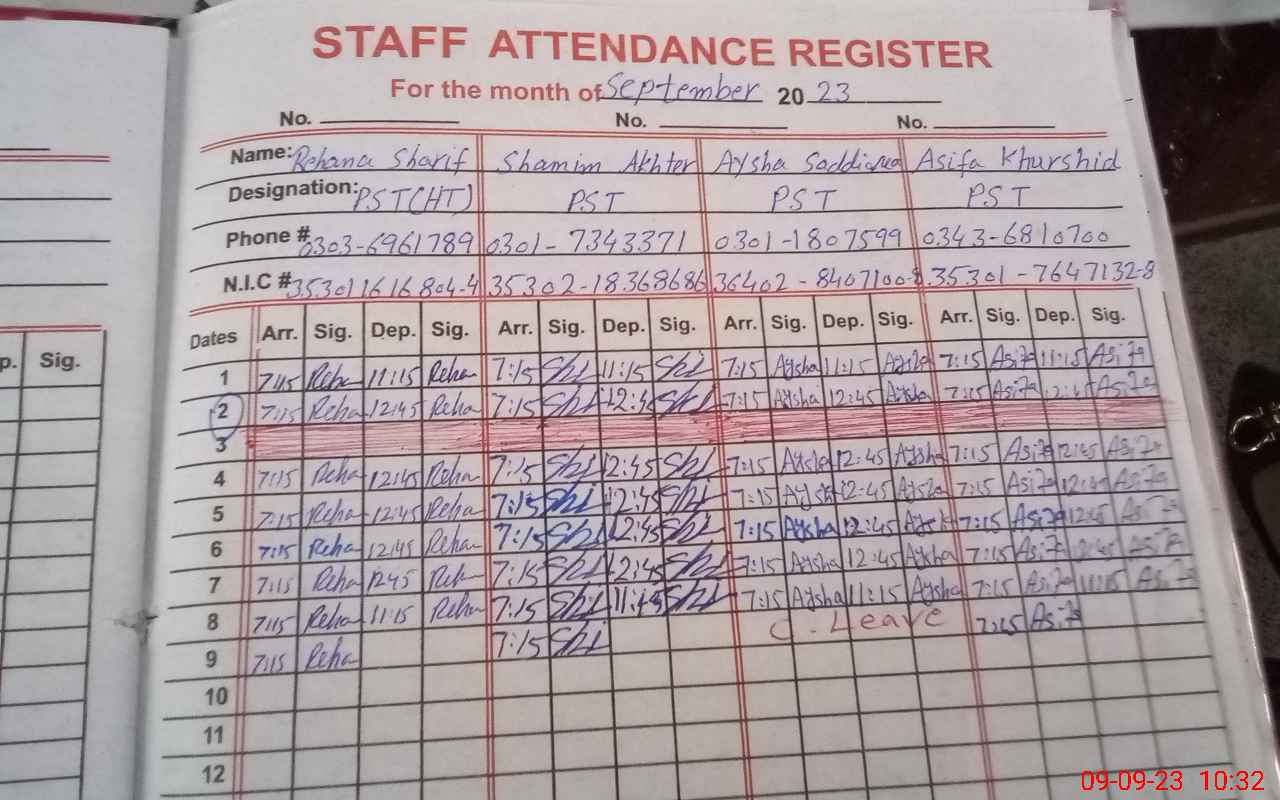 STAFF ATTENDANCE REGISTER
For the month of September 2023
No. No. No.
Name: Rehana Sharif Shamim Akhter Aysha Saddiqua Asifa Khurshid
Designation: PST(HT) PST PST PST
Phone # 0303-6961789 0301-7343371 0301-1807599 0343-6810700
N.I.C # 353011616804-4 35302-18368686 36402-8407100-8 35301-7647132-8
p. Sig.
Dates Arr. Sig. Dep. Sig. Arr. Sig. Dep. Sig. Arr. Sig. Dep. Sig. Arr. Sig. Dep. Sig.
1 7:15 Reha 11:15 Reha 7:15 11:15 7:15 Aysha 11:15 Aysha 7:15 Asifa 11:15 Asifa
2 7:15 Reha 12:45 Reha 7:15 12:45 7:15 Aysha 12:45 Aysha 7:15 Asifa 12:45 Asifa
3
4 7:15 Reha 12:45 Reha 7:15 12:45 7:15 Aysha 12:45 Aysha 7:15 Asifa 12:45 Asifa
5 7:15 Reha 12:45 Reha 7:15 12:45 7:15 Aysha 12:45 Aysha 7:15 Asifa 12:45 Asifa
6 7:15 Reha 12:45 Reha 7:15 12:45 7:15 Aysha 12:45 Aysha 7:15 Asifa 12:45 Asifa
7 7:15 Reha 12:45 Reha 7:15 12:45 7:15 Aysha 12:45 Aysha 7:15 Asifa 12:45 Asifa
8 7:15 Reha 11:15 Reha 7:15 11:45 7:15 Aysha 11:15 Aysha 7:15 Asifa 11:15 Asifa
9 7:15 Reha 7:15 C. Leave 7:15 Asifa
10
11
12
09-09-23 10:32